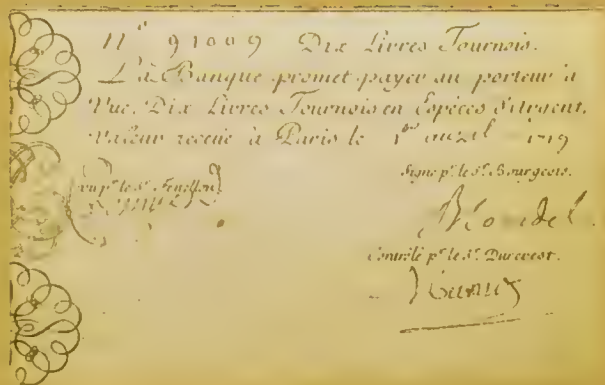 N° 91009 Dix Livres Tournois.
La Banque promet payer au porteur à
Vue, Dix Livres Tournois en Especes d'Argent,
valeur receüe à Paris le 1er avril 1719
Signé pr. le Sr. Bourgeois.
vu pr. le Sr. Fenellon.
Blondel
Contrôlé pr. le Sr. Durevest.